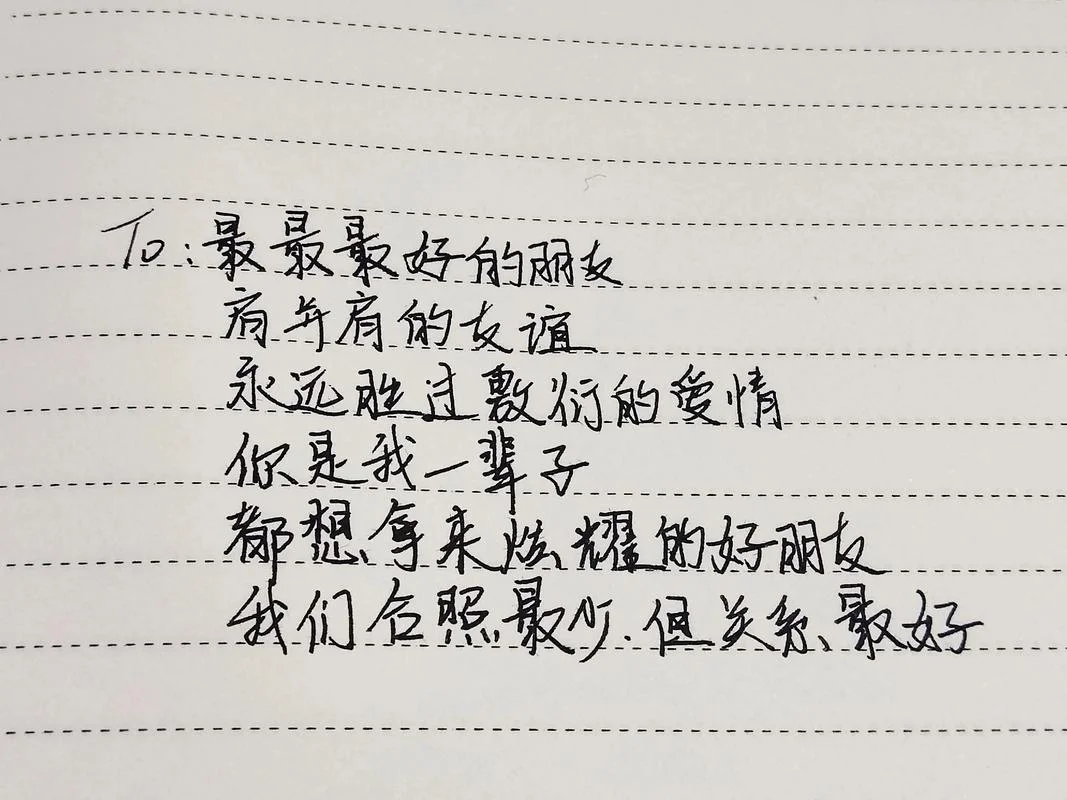 To:最最最好的朋友
肩并肩的友谊
永远胜过敷衍的爱情
你是我一辈子
都想拿来炫耀的好朋友
我们合照最少.但关系最好